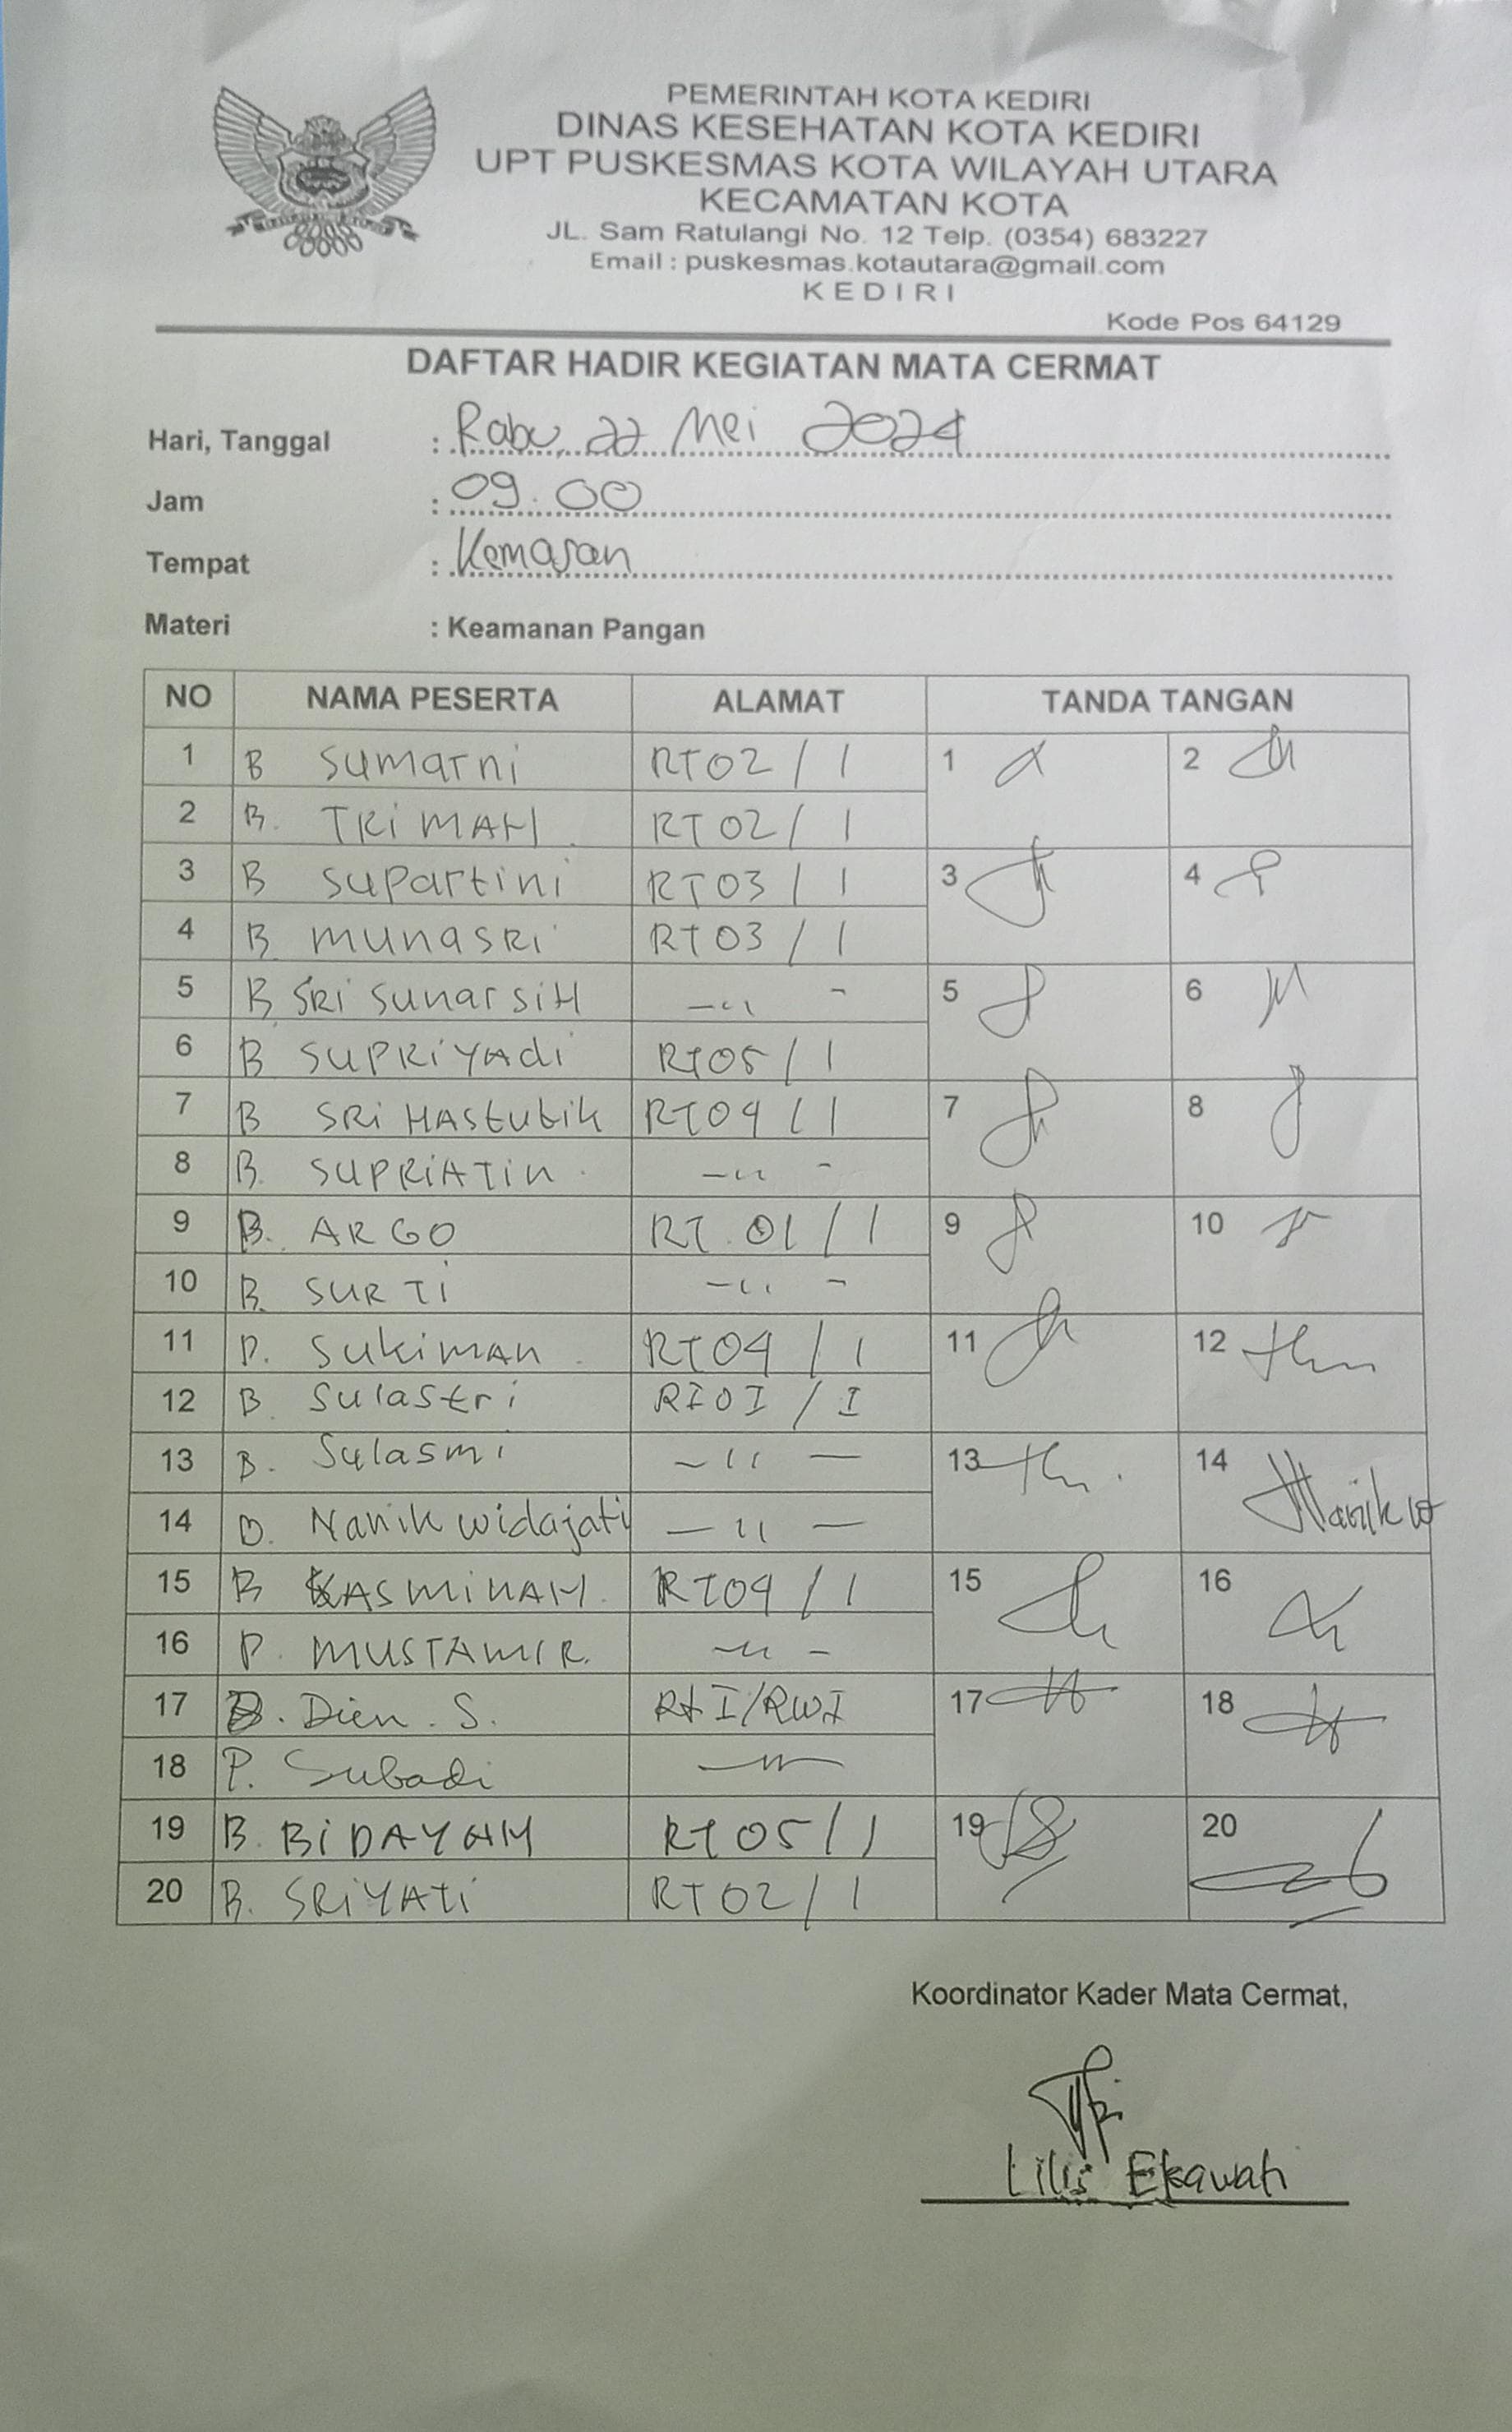 PEMERINTAH KOTA KEDIRI
DINAS KESEHATAN KOTA KEDIRI
UPT PUSKESMAS KOTA WILAYAH UTARA
KECAMATAN KOTA
JL. Sam Ratulangi No. 12 Telp. (0354) 683227
Email : puskesmas.kotautara@gmail.com
KEDIRI
Kode Pos 64129
DAFTAR HADIR KEGIATAN MATA CERMAT
Hari, Tanggal : Rabu, 22 Mei 2024
Jam : 09.00
Tempat : Kemasan
Materi : Keamanan Pangan
NO NAMA PESERTA ALAMAT TANDA TANGAN
1 B Sumarni RT02 / 1 1 2
2 B. TRIMAH RT02 / 1
3 B Supartini RT03 / 1 3 4
4 B. MUNASRI RT03 / 1
5 B. SRI SunarsiH –〃– 5 6
6 B SUPRIYAdi RT05 / 1
7 B SRI HAStutik RT04 / 1 7 8
8 B. SUPRIATIN –〃–
9 B. ARGO RT. 01 / 1 9 10
10 B. SURTI –〃–
11 P. SukiMAN RT04 / 1 11 12
12 B. Sulastri RT01 / I
13 B. Sulasmi –〃– 13 14 Nanik W
14 B. Nanik widajati –〃–
15 B KASMINAH RT04 / 1 15 16
16 P. MUSTAMIR. –〃–
17 B. Dien. S. Rt I/RWI 17 18
18 P. Subadi –〃–
19 B. BIDAYAH RT05 / 1 19 20
20 B. SRIYATI RT02 / 1
Koordinator Kader Mata Cermat,
Lilis Ekawati